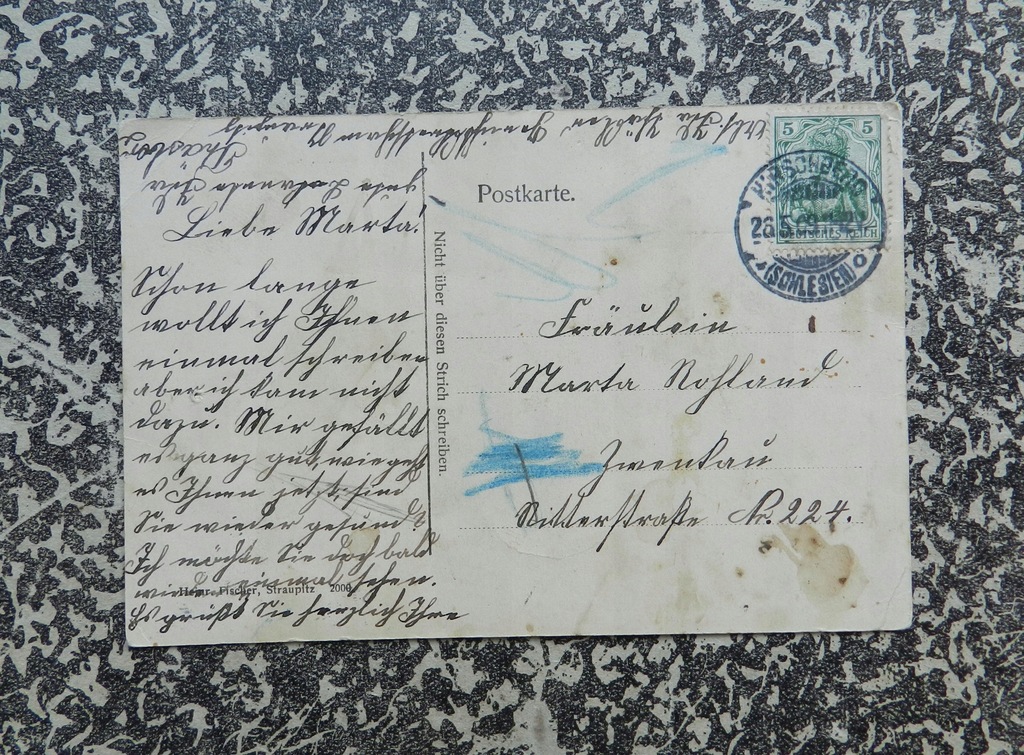 Postkarte.
5 5
HIRSCHBERG
26.5.09
(SCHLESIEN)
Liebe Marta!
Schon lange
wollt ich Ihnen
einmal schreiben
aber ich kam nicht
dazu. Mir gefällt
es ganz gut, wie geht
es Ihnen jetzt, sind
Sie wieder gesund?
Ich möchte Sie doch bald
wieder einmal sehen.
Es grüßt Sie herzlich Ihre
Nicht über diesen Strich schreiben.
Fräulein
Marta Rohland
Zwenkau
Ritterstraße No. 224.
Fischer, Straupitz 2000